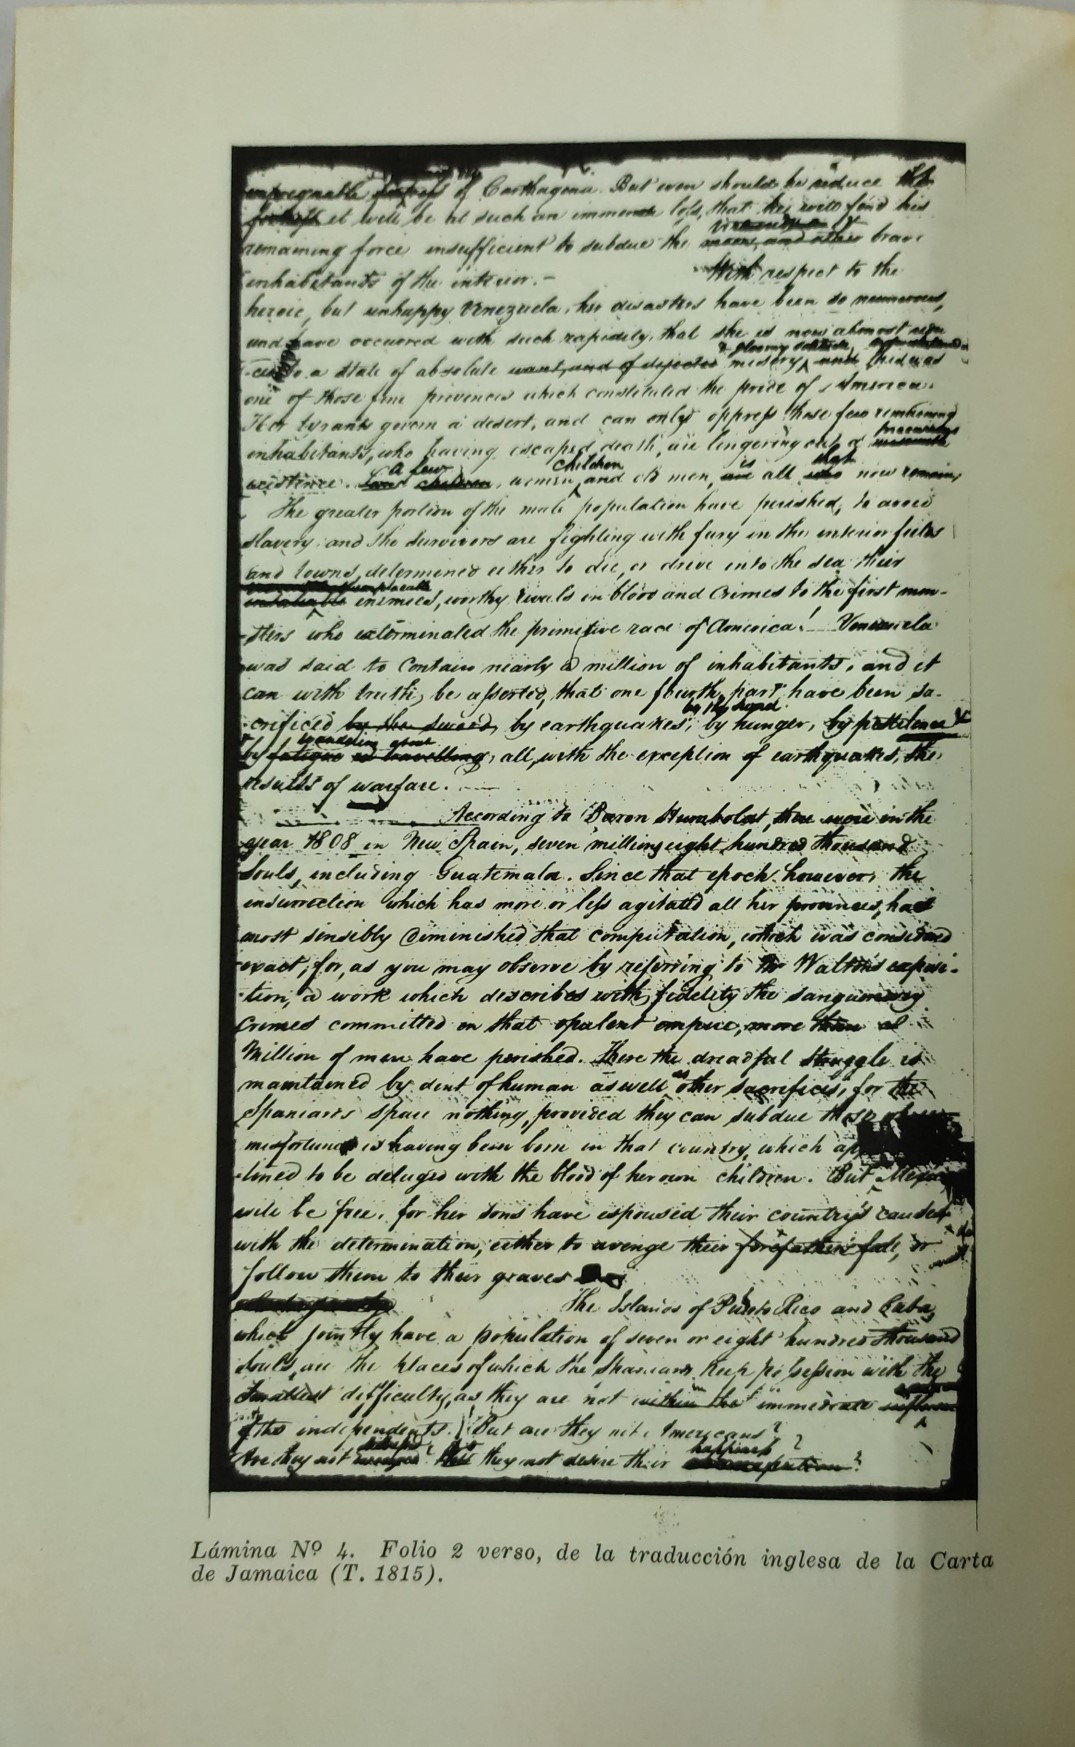 impregnable fortress of Carthagena. But even should he reduce the
it will be at such an immense loss, that he will find his
remaining force insufficient to subdue the brave
inhabitants of the interior. —
With respect to the
heroic, but unhappy Venezuela, her disasters have been so numerous,
and have occurred with such rapidity, that she is now almost redu
-ced to a state of absolute want, and of misery, & gloomy solitude, and
one of those fine provinces which constituted the pride of America.
Her tyrants govern a desert, and can only oppress those few remaining
inhabitants, who having escaped death, are lingering out a precarious
existence. a few children, women, children and old men, is are all that who now remain,
The greater portion of the male population have perished, to avoid
slavery and the survivors are fighting with fury in the interior fields
and towns, determined either to die, or drive into the sea their
insatiable enimies, worthy rivals in blood and crimes to the first mon-
-sters who exterminated the primitive race of America! — Venezuela
was said to contain nearly a million of inhabitants, and it
can with truth, be asserted, that one fourth part have been sa-
-crificed by the sword, by earthquakes, by the sword by hunger, by pestilence &
by fatigue in travelling, wandering about all, with the exception of earthquakes, the
results of warfare.
According to Baron Humboldt, there were in the
year 1808 in New Spain, seven millions eight hundred thousand
Souls, including Guatemala. Since that epoch however, the
insurrection which has more or less agitated all her provinces, has
most sensibly diminished that computation, which was considered
exact; for, as you may observe by referring to Mr Walton's exposi-
-tion, a work which describes with fidelity the sanguinary
Crimes committed in that opulent empire, more than a
Million of men have perished. There the dreadful struggle is
maintained by dint of human as well as other sacrifices; for the
Spaniards spare nothing, provided they can subdue those whose
misfortune is having been born in that country, which ap
-tined to be deluged with the blood of her own children. But Mexico
will be free, for her sons have espoused their country's cause
with the determination, either to avenge their forefathers' fate, or
follow them to their graves
The Islands of Puerto Rico and Cuba,
which jointly have a population of seven or eight hundred thousand
Souls, are the places of which the Spaniards keep possession with the
smallest difficulty, as they are not within in the immediate influence
of the independents. But are they not Americans?
Are they not do they not desire their happiness ?
Lámina Nº 4. Folio 2 verso, de la traducción inglesa de la Carta
de Jamaica (T. 1815).